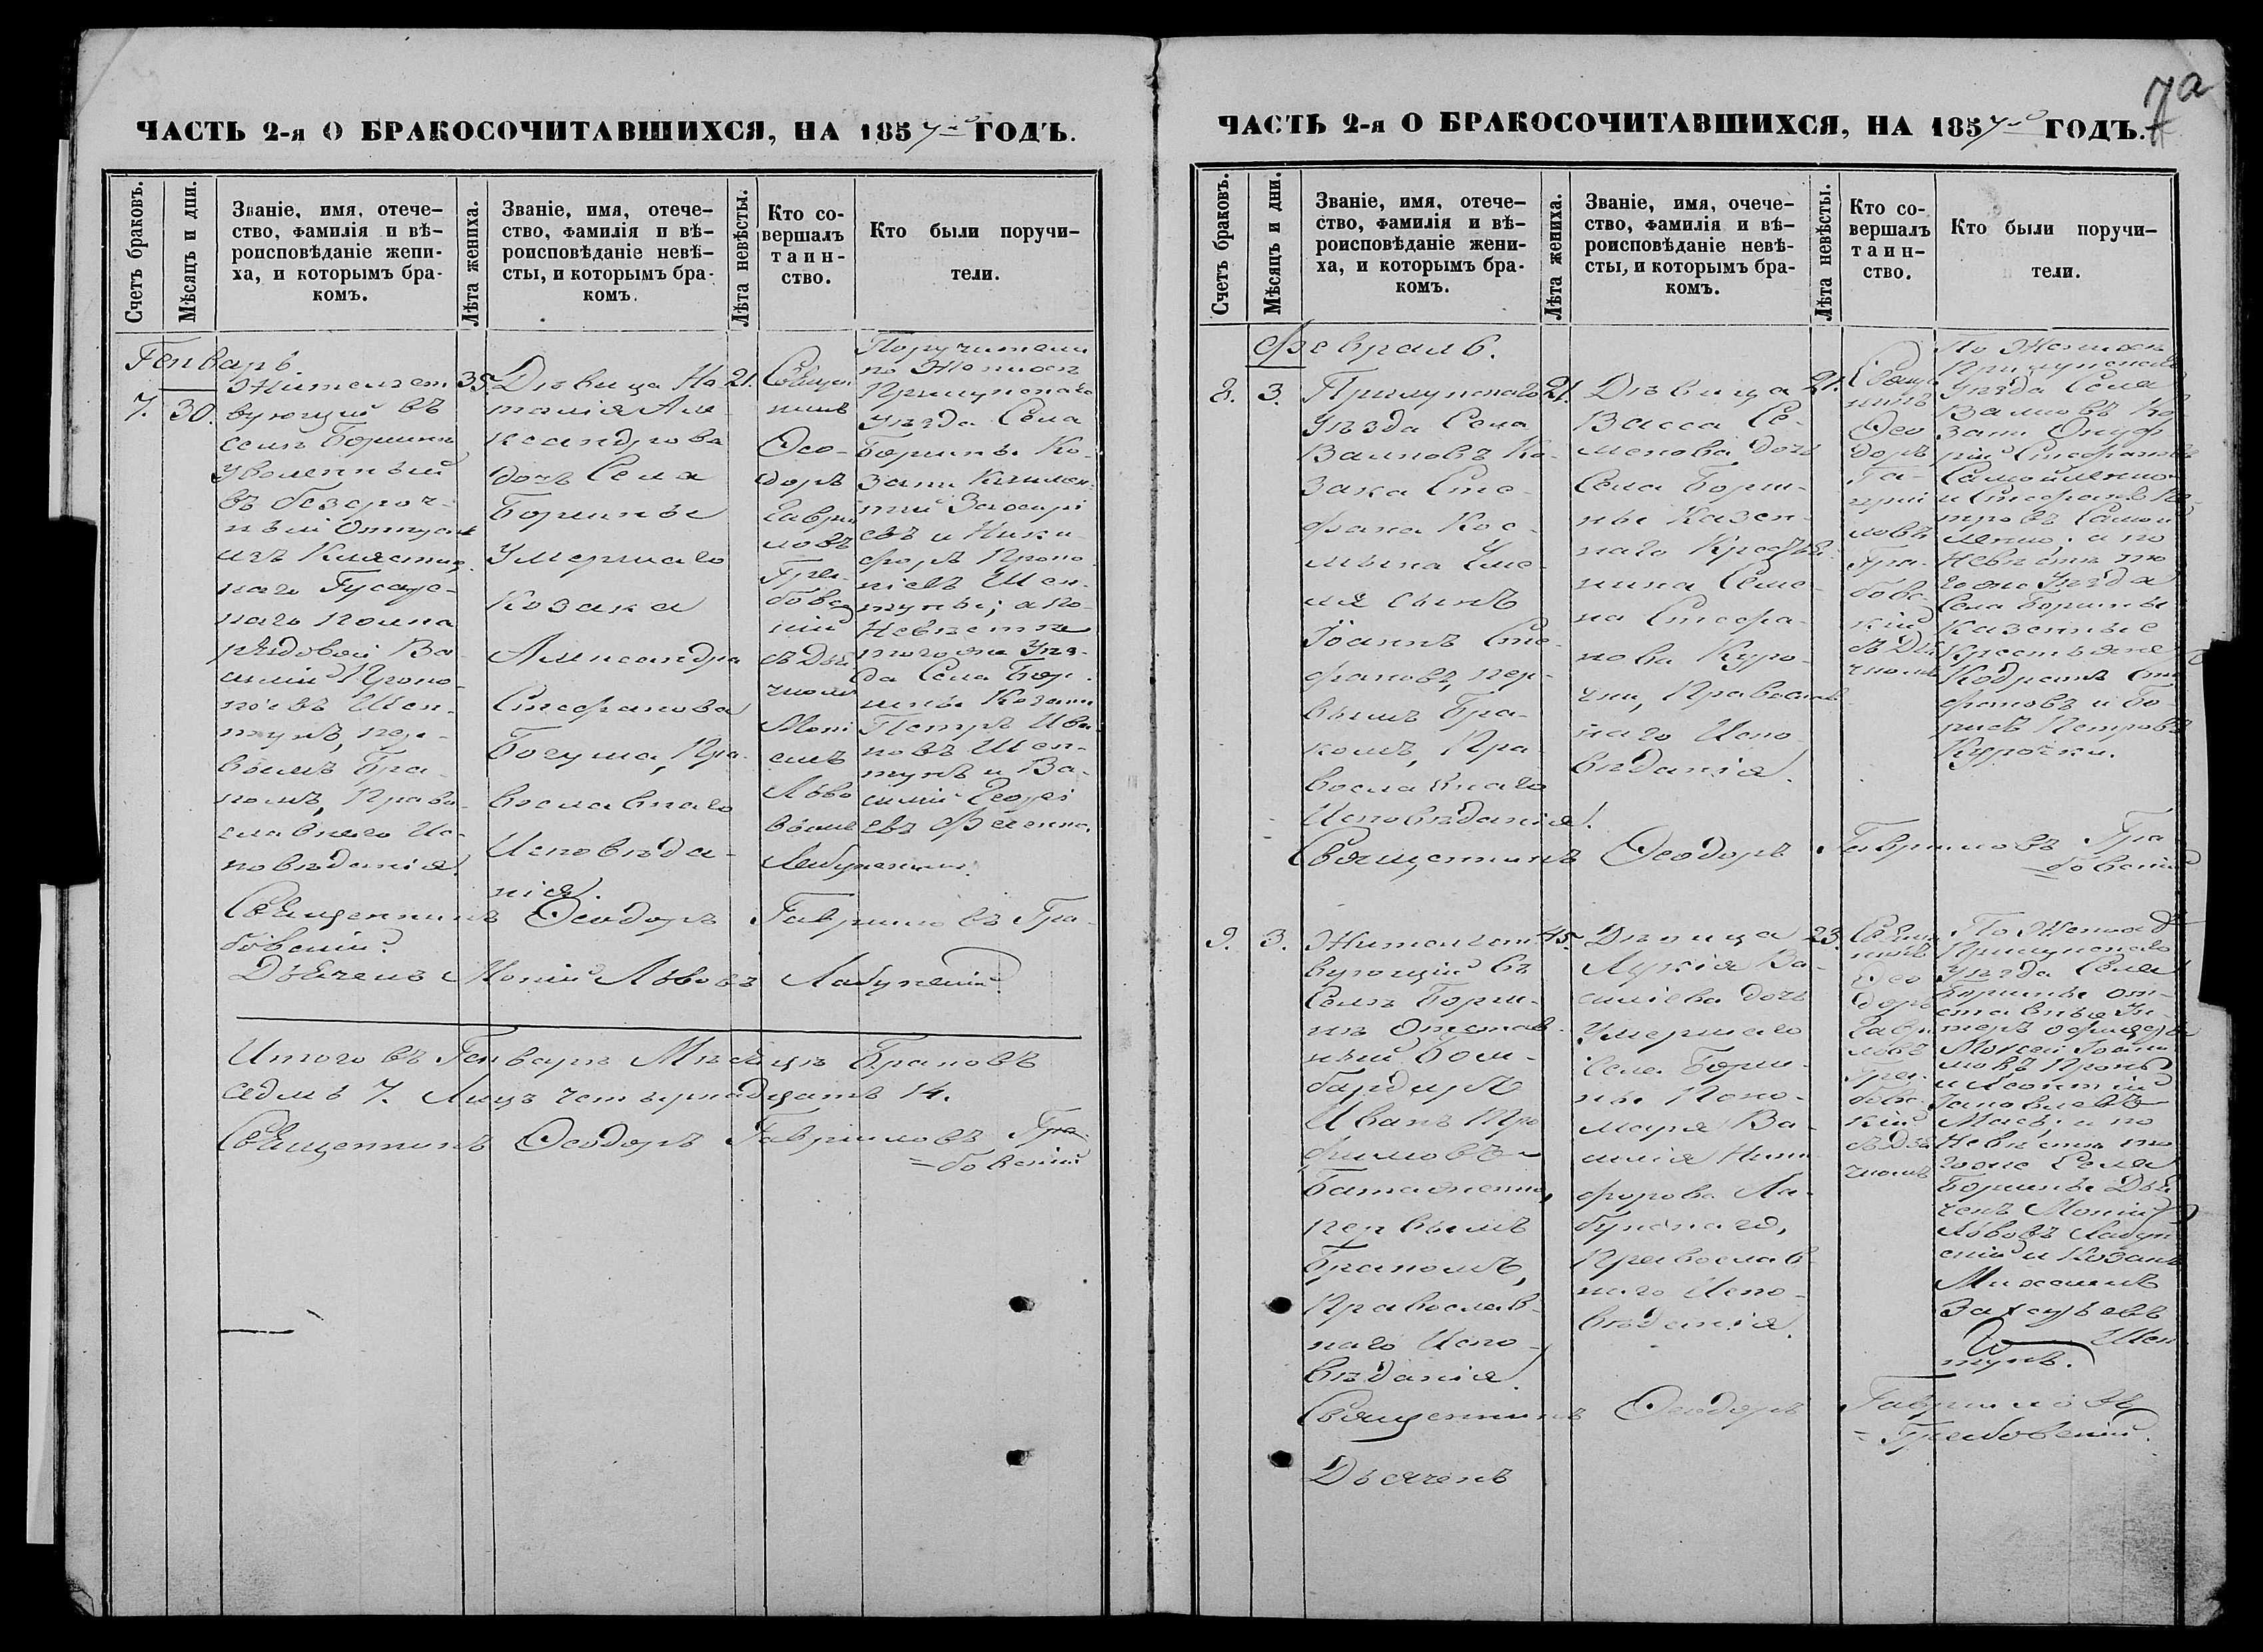 7а
ЧАСТЬ 2-я О БРАКОСОЧИТАВШИХСЯ, НА 1857-й ГОДЪ.
Счетъ браковъ.
Мѣсяцъ и дни.
Званіе, имя, отече-
ство, фамилія и вѣ-
роисповѣданіе жени-
ха, и которымъ бра-
комъ.
Лѣта жениха.
Званіе, имя, отече-
ство, фамилія и вѣ-
роисповѣданіе невѣ-
сты, и которымъ бра-
комъ.
Лѣта невѣсты.
Кто со-
вершалъ
таин-
ство.
Кто были поручи-
тели.
Генварь.
7.
30.
Жительст
вующій въ
селѣ Боршнѣ
Уволенный
въ безсроч-
ный Отпускъ
изъ
наго Гусарс-
каго полка
рядовой Ва-
силій Проко-
піевъ Шеп-
тунъ, пер-
вымъ Бра-
комъ, Право-
славнаго Ис-
повѣданія.
35.
Дѣвица На
талія Але-
ксандрова
дочь Села
Боршны
Умершаго
Козака
Александра
Стефанова
Богуша, Пра-
вославнаго
Исповѣда-
нія.
21.
Священ
никъ
Ѳео-
доръ
Гаврiи
ловъ
Гра-
бовс
кій
съ Дья
чкомъ
Моки
емъ
Льво
вымъ
Лабунскимъ.
Поручители
по Женихѣ
Прилукскаго
Уѣзда Села
Боршны Ко-
заки Климен-
тій
евъ и Ники-
форъ Проко-
піевъ Шеп-
туны; а по
Невѣстѣ
тогоже Уѣз-
да Села Бор-
шны Козаки
Петръ Ива-
новъ Шеп-
тунъ и Ва-
силій Георгі
евъ
Священникъ Ѳеодоръ Гавриловъ Гра-
бовскій.
Дьячекъ Мокій Львовъ Лабунскій.
Итого въ Генварѣ Мѣсяцѣ Браковъ
седмь 7. Лицъ четырнадцать 14.
Священникъ Ѳеодоръ Гавріиловъ Гра-
=бовскій
ЧАСТЬ 2-я О БРАКОСОЧИТАВШИХСЯ, НА 1857-й ГОДЪ.
Счетъ браковъ.
Мѣсяцъ и дни.
Званіе, имя, отече-
ство, фамилія и вѣ-
роисповѣданіе жени-
ха, и которымъ бра-
комъ.
Лѣта жениха.
Званіе, имя, очече-
ство, фамилія и вѣ-
роисповѣданіе невѣ-
сты, и которымъ бра-
комъ.
Лѣта невѣсты.
Кто со-
вершалъ
таин-
ство.
Кто были поручи-
тели.
Февраль.
8.
3.
Прилукскаго
Уѣзда Села
Валковъ Ко-
зака Сте-
фана Кос-
мина
ля сынъ
Іоаннъ Сте-
фановъ, пер-
вымъ Бра-
комъ, Пра-
вославнаго
Исповѣданія.
21.
Дѣвица
Васса Се-
менова дочь
Села Борш-
ны Казен-
наго Крестья
нина Семе-
на Стефа-
нова Куро-
чки, Православ-
наго Испо-
вѣданія.
21.
Свящ
никъ
Ѳео
доръ
Га-
врiи
ловъ
Гра-
бовс-
кій
съ Дья
чкомъ
По Женихѣ
Прилукскаго
Уѣзда Села
Валковъ Ко
заки Онуф
рій Стефановъ
Самойленко
и Стефанъ Пе-
тровъ Самой
ленко: а по
Невѣстѣ то
гоже Уѣзда
Села Боршны
Казенные
Крестьяне
Кодратъ Сте
фановъ и Бо-
рисъ Петровъ
Курочки.
Священникъ Ѳеодоръ Гавриловъ Гра
=бовскій
9.
3.
Жительст
вующій въ
Селѣ Борш-
нѣ Отстав-
ный Бом-
бардиръ
Иванъ Тро
фимовъ
первымъ
Бракомъ,
Православ-
наго Испо-
вѣданія.
45.
Дѣвица
Лукія Ва-
силіева дочь
Умершаго
Села Борш-
ны Поно-
маря Ва-
силія Ники
форова Ла-
бунскаго,
Православ-
наго Испо-
вѣданія.
23.
Свящ
никъ
Ѳео
доръ
Гаврi
ловъ
Гра-
бовс-
кій
съ Дья
чкомъ
По Женихѣ
Прилукскаго
Уѣзда Села
Боршны от-
ставные Ун-
теръ офицеръ
Моисей
и Леонтій
Яковлевъ
а по
Невѣстѣ то
гоже Села
Боршны Дья
чекъ Мокій
Львовъ Лабун
скій и Козакъ
Михаилъ
Захарьевъ
Шеп
тунъ.
Священникъ Ѳеодоръ Гавриловъ
=Грабовскій.
Дьячекъ